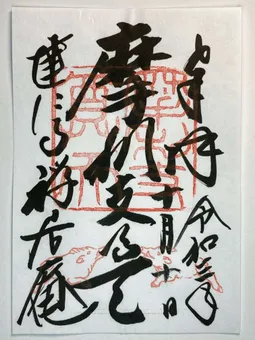 奉拝
令和三年
十月十日
摩利支尊天
建仁寺禅居庵